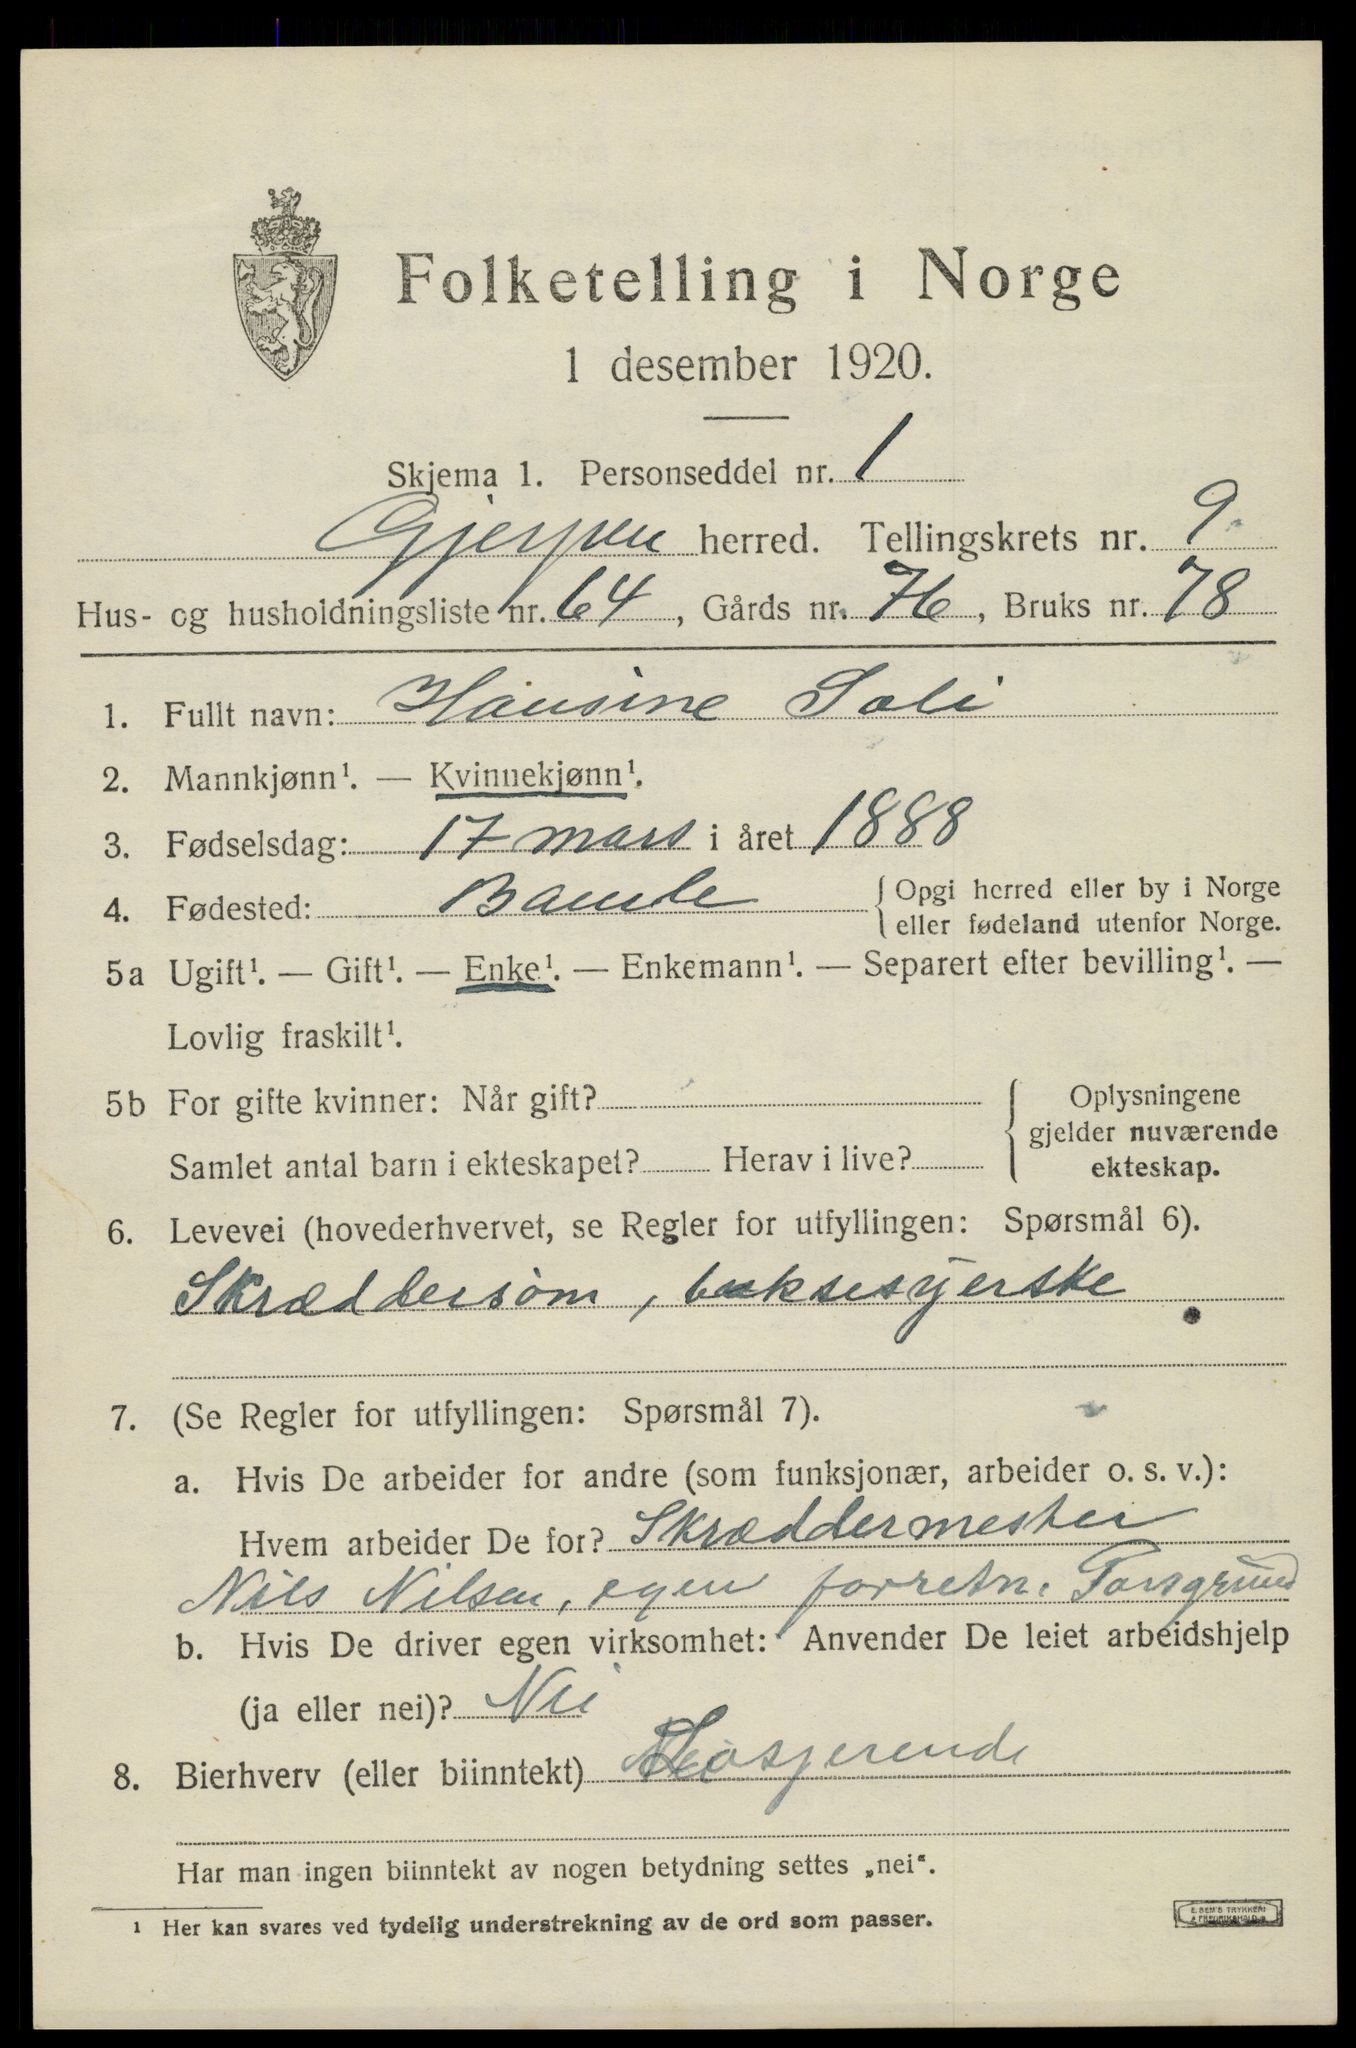 Folketelling i Norge
1 desember 1920.
Skjema 1. Personseddel nr. 1
Gjerpen herred. Tellingskrets nr. 9
Hus- og husholdningsliste nr. 64, Gårds nr. 76, Bruks nr. 78
1. Fullt navn: Hansine Soli
2. Mannkjønn¹. — Kvinnekjønn¹.
3. Fødselsdag: 17 mars i året 1888
4. Fødested: Bamle { Opgi herred eller by i Norge
eller fødeland utenfor Norge.
5a Ugift¹. — Gift¹. — Enke¹. — Enkemann¹. — Separert efter bevilling¹. —
Lovlig fraskilt¹.
5b For gifte kvinner: Når gift?
Samlet antal barn i ekteskapet? Herav i live?
{ Oplysningene
gjelder nuværende
ekteskap.
6. Levevei (hovederhvervet, se Regler for utfyllingen: Spørsmål 6).
Skræddersøm, buksesyerske
7. (Se Regler for utfyllingen: Spørsmål 7).
a. Hvis De arbeider for andre (som funksjonær, arbeider o. s. v.):
Hvem arbeider De for? Skræddermester
Nils Nilsen, egen forretn. Porsgrund
b. Hvis De driver egen virksomhet: Anvender De leiet arbeidshjelp
(ja eller nei)? Nei
8. Bierhverv (eller biinntekt)
Har man ingen biinntekt av nogen betydning settes „nei".
¹ Her kan svares ved tydelig understrekning av de ord som passer.
E. SEM'S TRYKKERI
FREDRIKSHALD